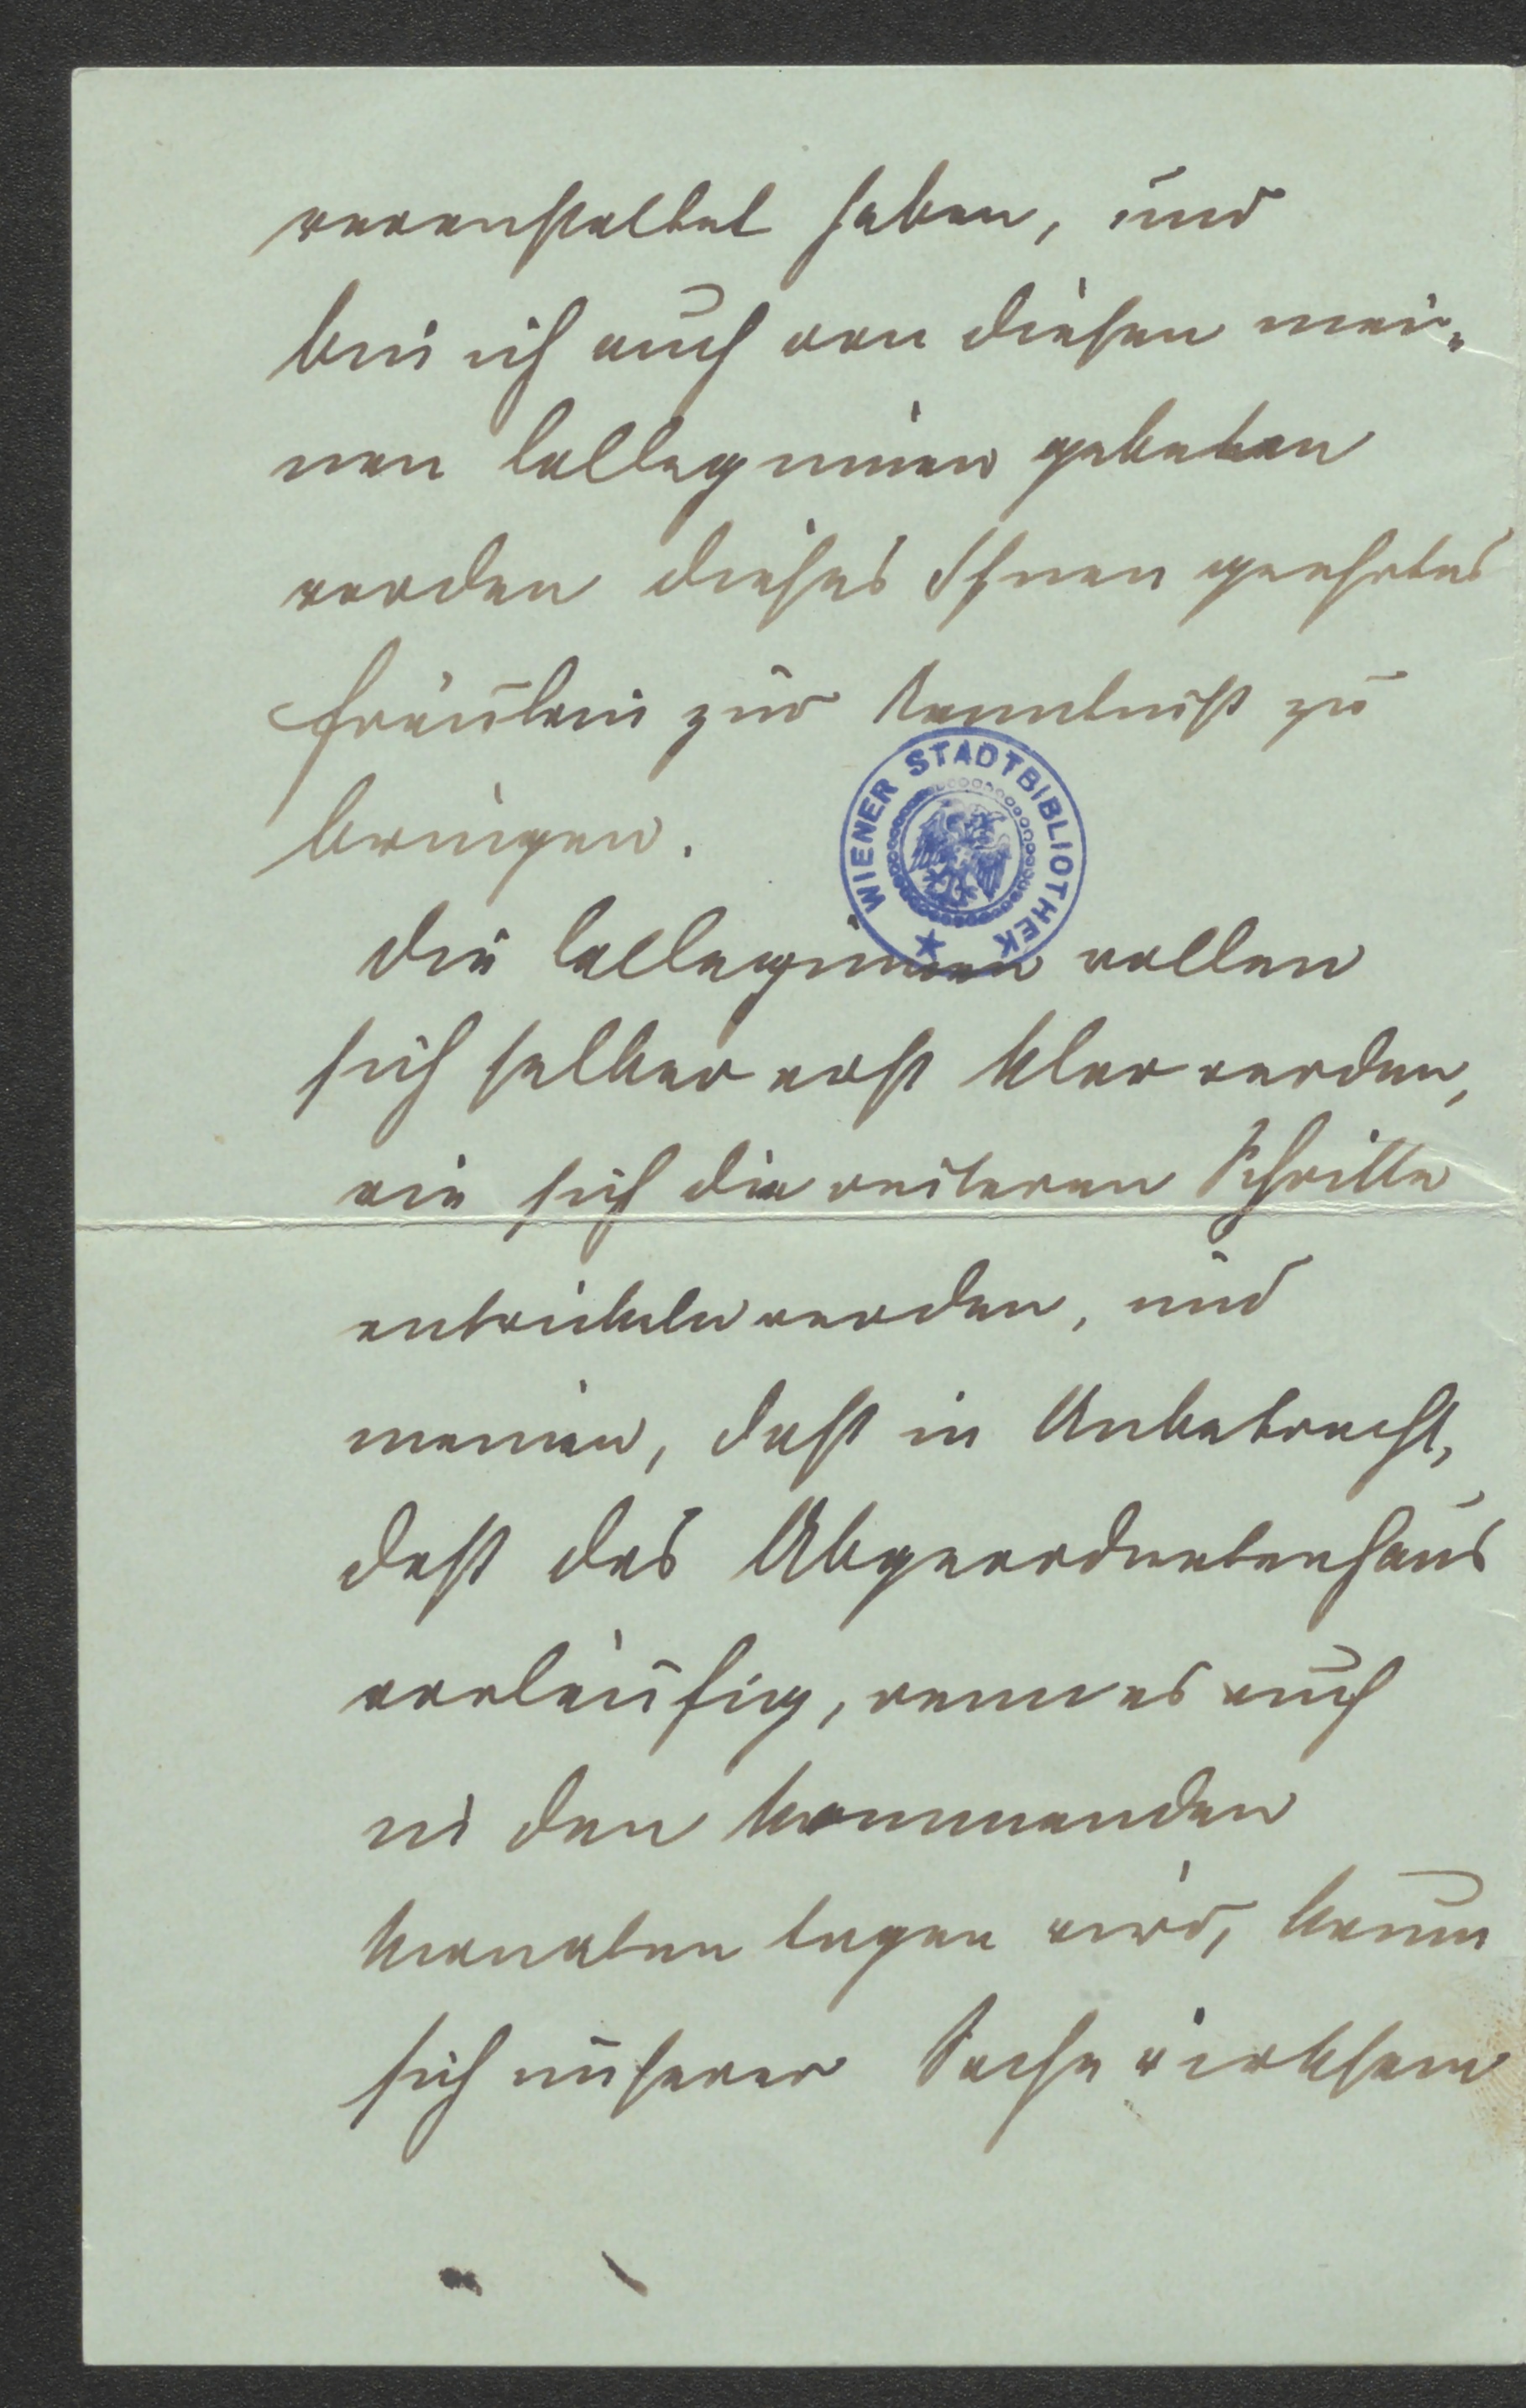 veranstaltet haben, und
bin ich auch von diesen mei-
nen Colleginnen gebeten
worden dieses Ihnen geehrtes
Fräulein zur Kenntniß zu
bringen.
WIENER STADTBIBLIOTHEK
Die Colleginnen wollen
sich selber erst klar werden,
wie sich die weiteren Schritte
entwickeln werden, und
meinen, daß in Anbetracht,
daß das Abgeordnetenhaus
vorläufig, wenn es auch
in den kommenden
Monaten tagen wird, kaum
sich unserer Sache wirksam